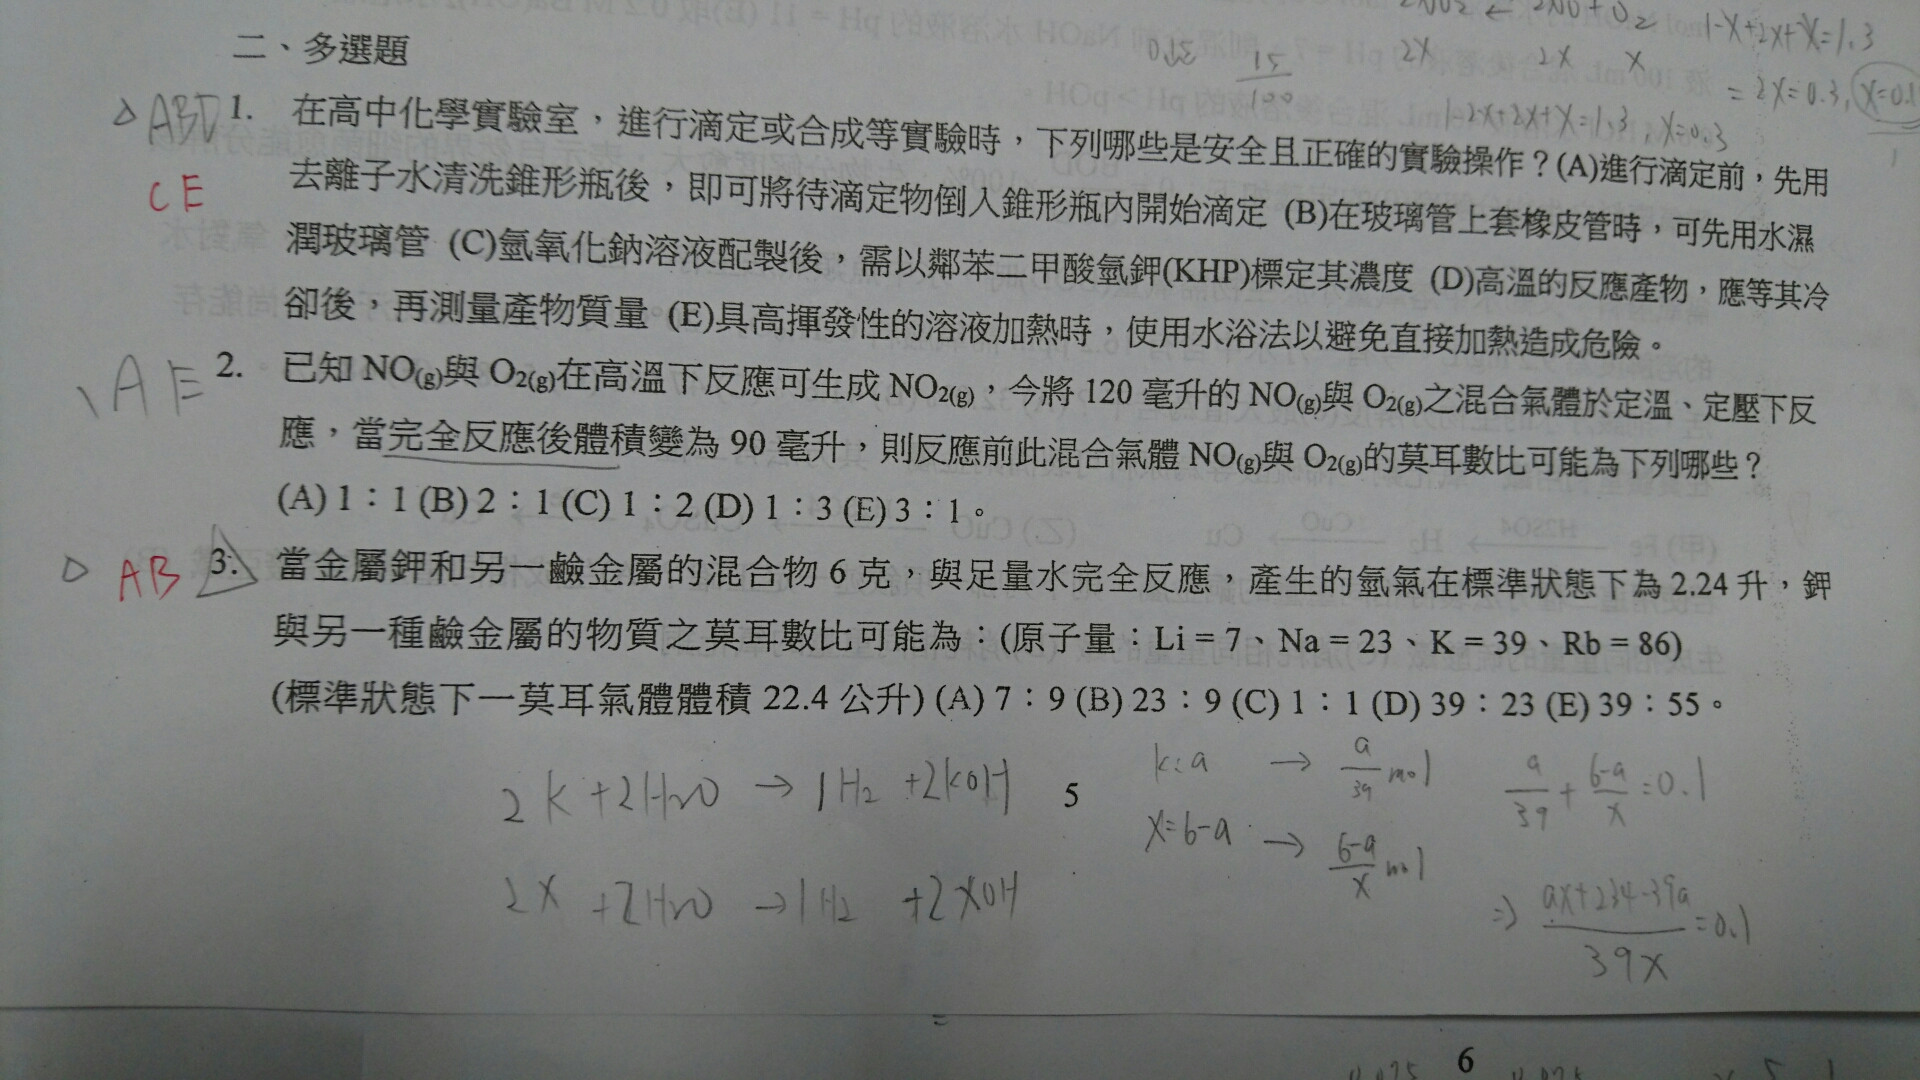 2NO₂ ← 2NO + O₂ 1-X+2x+X=1.3
2X 2X X = 2X=0.3, X=0.1
15/100 1-2X+2X+X=1.3, X=0.3
二、多選題
ABD 1. 在高中化學實驗室，進行滴定或合成等實驗時，下列哪些是安全且正確的實驗操作？(A)進行滴定前，先用
CE 去離子水清洗錐形瓶後，即可將待滴定物倒入錐形瓶內開始滴定 (B)在玻璃管上套橡皮管時，可先用水濕
潤玻璃管 (C)氫氧化鈉溶液配製後，需以鄰苯二甲酸氫鉀(KHP)標定其濃度 (D)高溫的反應產物，應等其冷
卻後，再測量產物質量 (E)具高揮發性的溶液加熱時，使用水浴法以避免直接加熱造成危險。
AE 2. 已知 NO(g)與 O2(g)在高溫下反應可生成 NO2(g)，今將 120 毫升的 NO(g)與 O2(g)之混合氣體於定溫、定壓下反
應，當完全反應後體積變為 90 毫升，則反應前此混合氣體 NO(g)與 O2(g)的莫耳數比可能為下列哪些？
(A) 1：1 (B) 2：1 (C) 1：2 (D) 1：3 (E) 3：1。
AB 3. 當金屬鉀和另一鹼金屬的混合物 6 克，與足量水完全反應，產生的氫氣在標準狀態下為 2.24 升，鉀
與另一種鹼金屬的物質之莫耳數比可能為：(原子量：Li = 7、Na = 23、K = 39、Rb = 86)
(標準狀態下一莫耳氣體體積 22.4 公升) (A) 7：9 (B) 23：9 (C) 1：1 (D) 39：23 (E) 39：55。
2K+2H₂O → 1H₂ +2KOH 5 K:a → a/39 mol a/39 + 6-a/X =0.1
X=6-a → 6-a/X mol
2X +2H₂O → 1H₂ +2XOH ⇒ ax+234-39a/39X =0.1
6